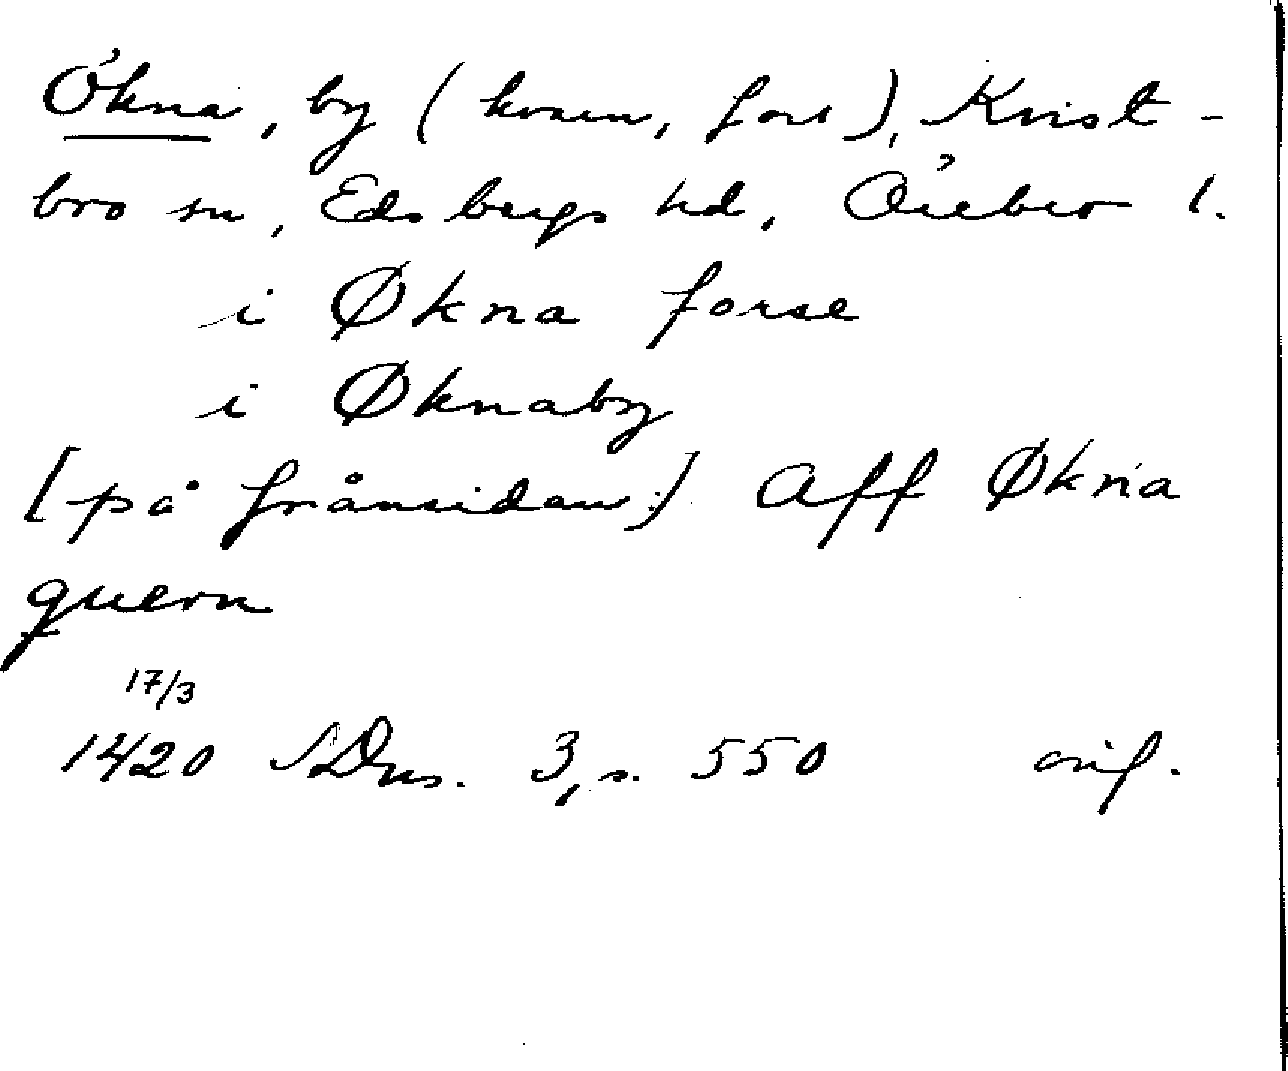 Ökna, by (kvarn, fors), Kvist-
bro sn, Edsbergs hd, Örebro l.
i Økna forse
i Øknaby
[på frånsidan:] Aff Økna
quern
17/3
1420 SDns. 3, s. 550 orig.